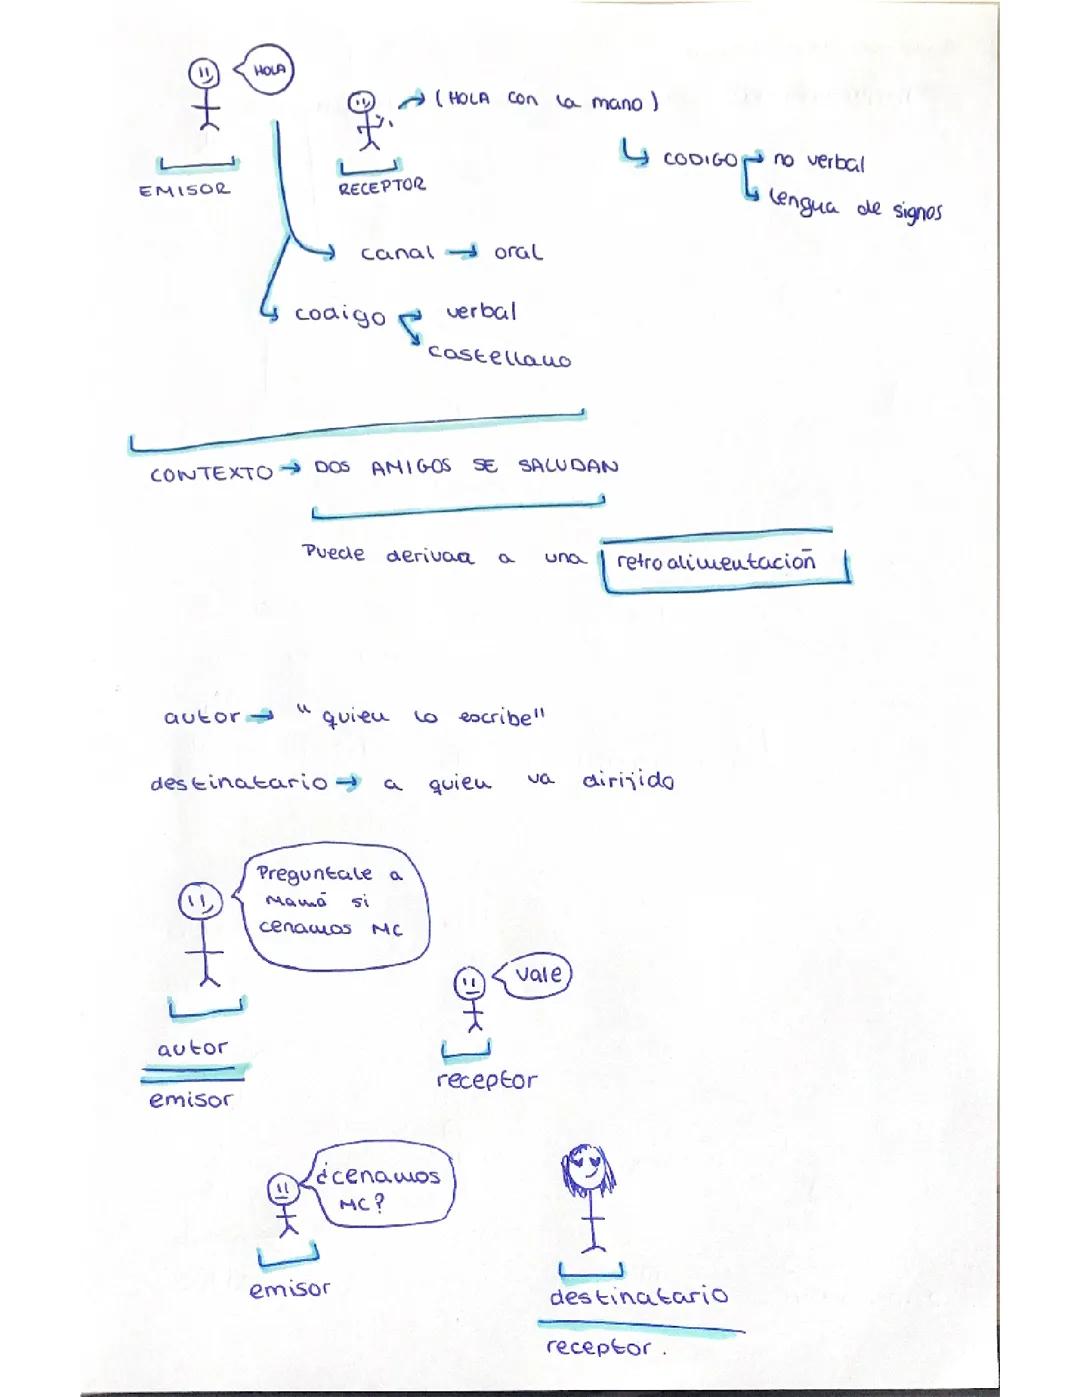 HOLA
(HOLA con la mano)
CODIGO no verbal
lengua de signos
EMISOR
RECEPTOR
canal → oral
codigo verbal
castellano
CONTEXTO → DOS AMIGOS SE SALUDAN
Puede derivaa a una retroalimentación
autor → "quien lo escribe"
destinatario → a quien va dirijido
Preguntale a
Mamá si
cenamos MC
vale
autor
emisor
receptor
¿cenamos
MC?
emisor
destinatario
receptor.